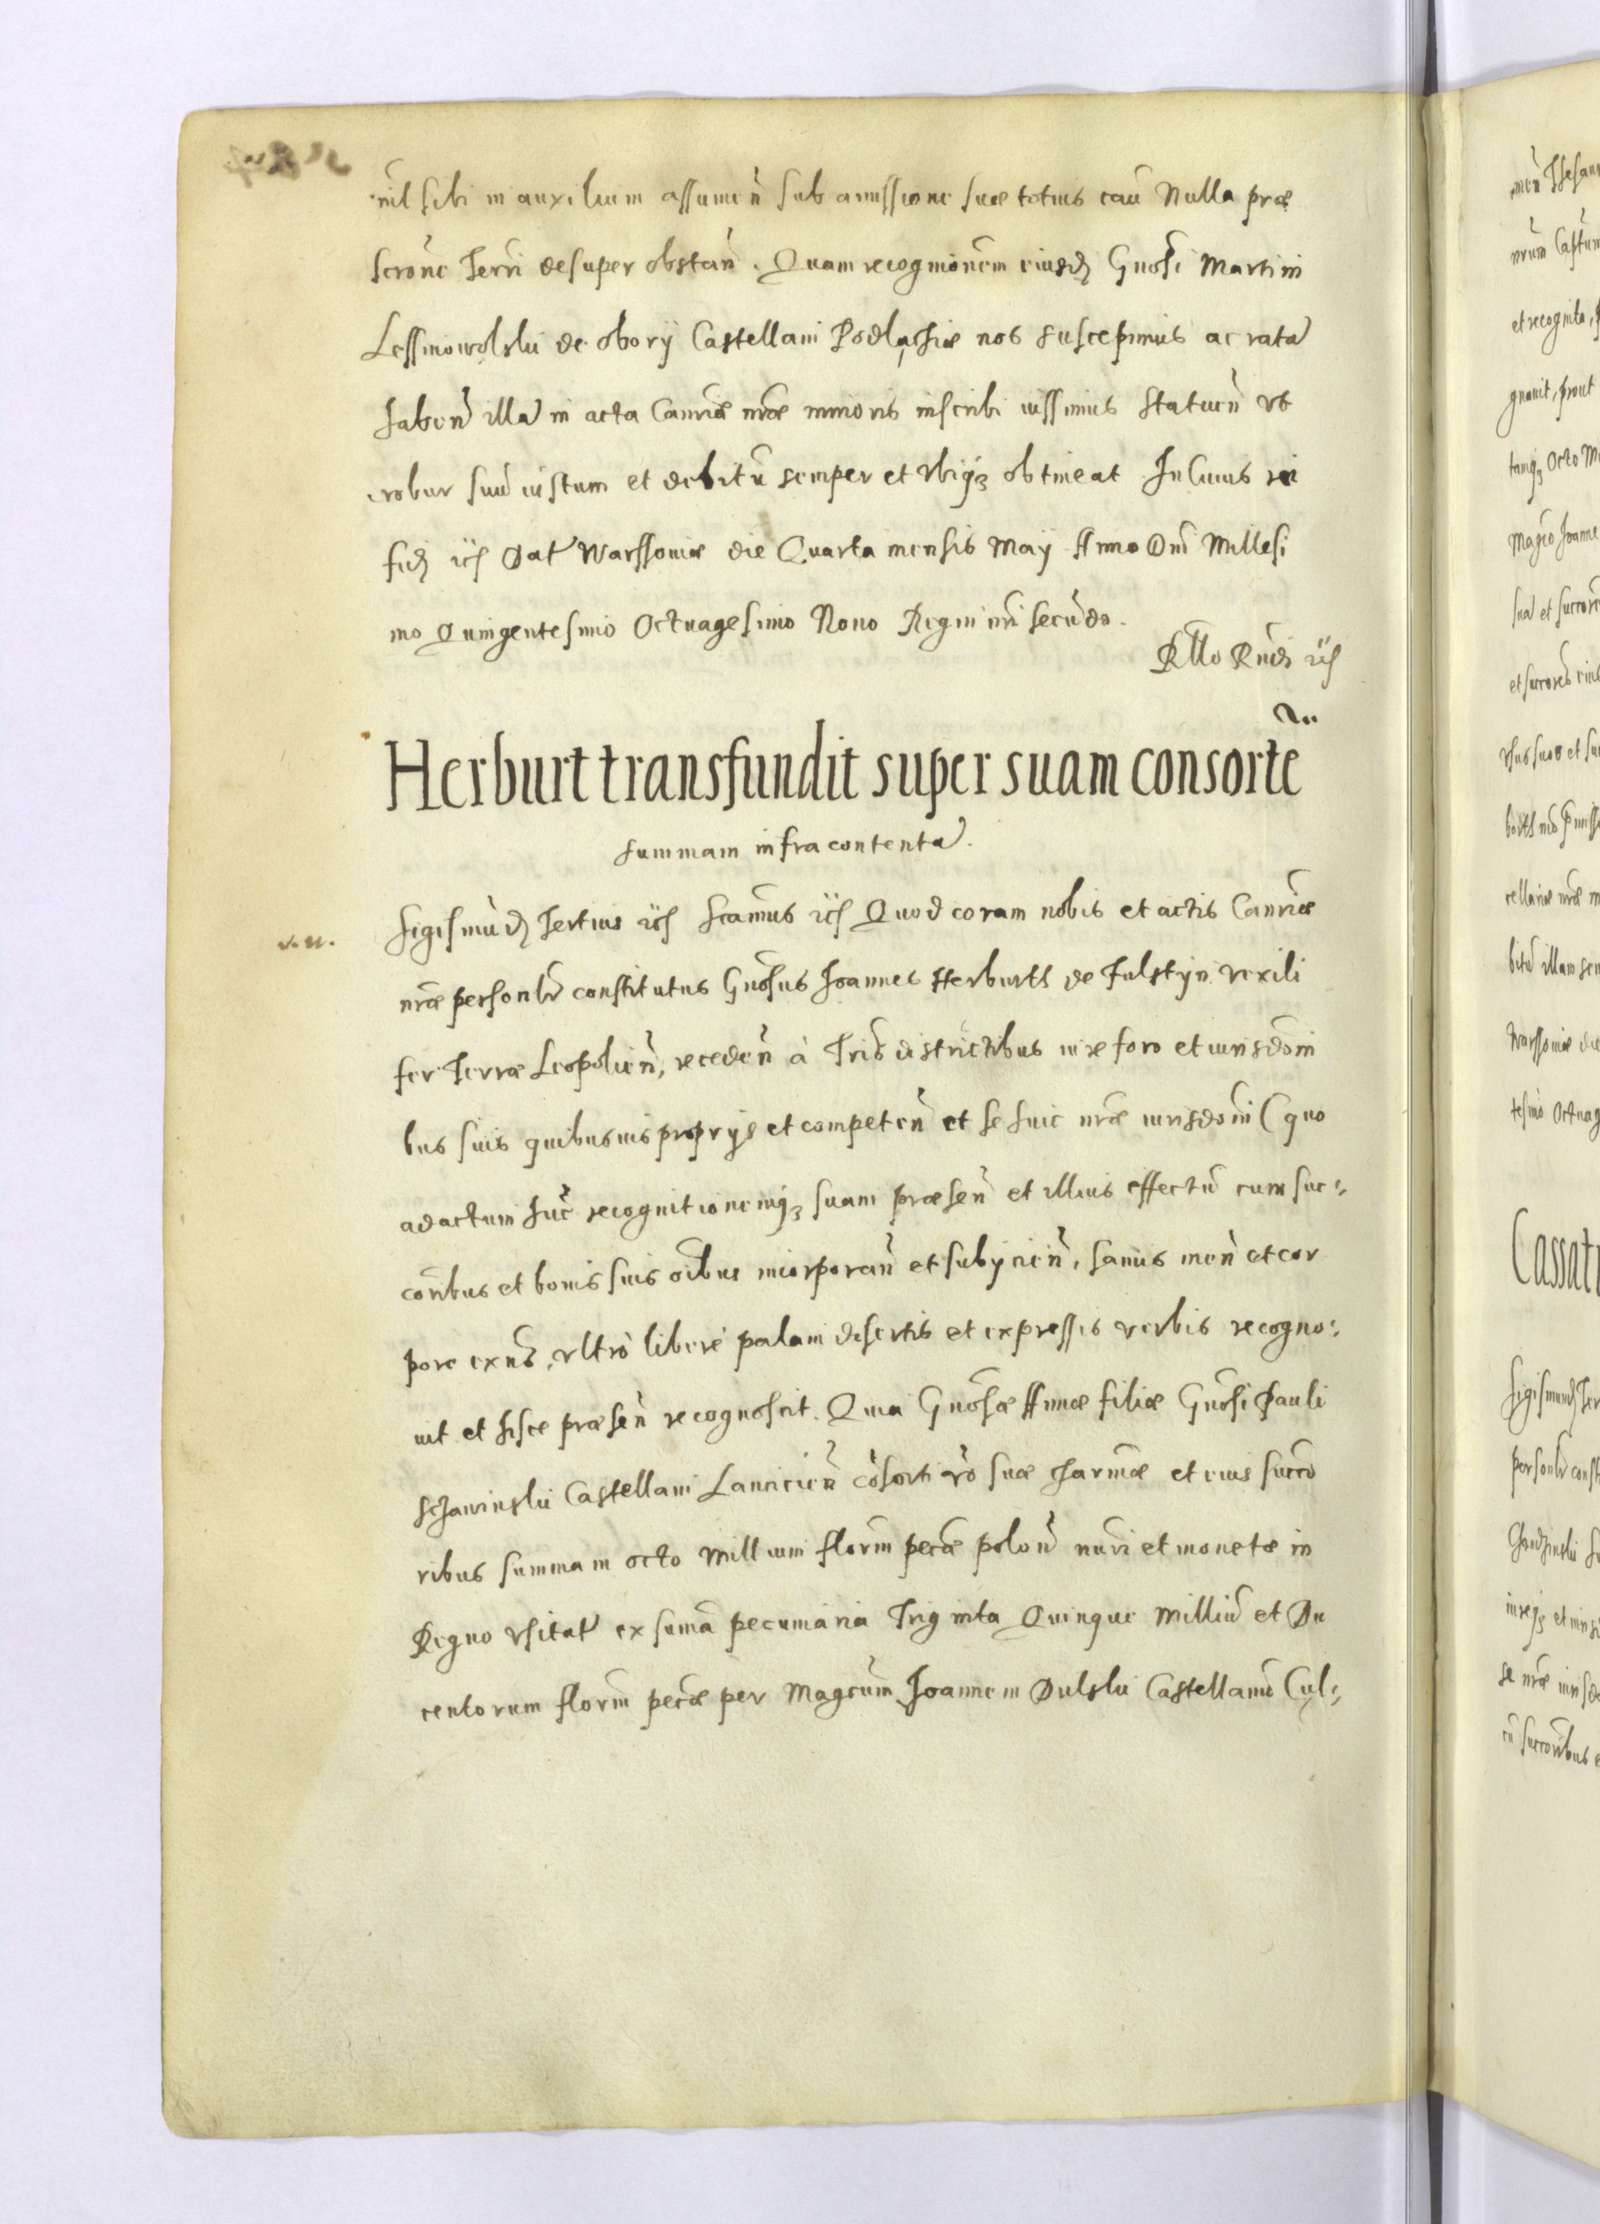 nil sibi in auxilium assumen̄ sub amissione suæ totius cau̅ Nulla præ
scrōne Terrī desuper obstan̄. Quam recognionēm eiusdꝫ Gnosī Martini
Lessniowolskÿ de Obory Castellani Podlachiæ nos suscepimus ac rata̅
haben̄ illa̅ in acta Canriæ nræ minoris inscribi iussimus Statuen̄ vt
robur suu̅ iustum et debitu̅ semper et vbiqꝫ obtineat In Cuius rei
fidꝫ ꝛc̈ Dat̅ Warssouiæ die Quarta mensis Maÿ Anno Dni̅ Millesi
mo Quingentesimo Octuagesimo Nono Regni nr̄i secu̅do.
Rllo Rndi ꝛc̈
Herburt transfundit super suam consorte̅
summam infra contenta̅.
Sigismu̅dꝫ Tertius ꝛc̈ Scamus ꝛc̈ Quod coram nobis et actis Canriæ
nræ personlr̄ constitutus Gnosus Joannes Herburth de Fulstÿn vexili
fer Terræ Leopolien̄, receden̄ à Tris districtibus iure foro et iurisdoni
bus suis quibusuis proprÿs et competen̄ et se huic nræ iurisdoni (quo
ad actum hu̅c recognitionemqꝫ suam præsen̄ et illius effectu̅ cum suc⸗
coribus et bonis suis oi̅bus incorporan̄ et subÿcien̄, sanus men̄ et cor
pore exn̄s, vltrò liberè palam disertis et expressis verbis recogno⸗
uit et hisce præsen̄ recognoscit. Quia Gnosæ Annæ filiæ Gnosi Pauli
Schawinskÿ Castellani Lancicien̄ co̅sorti vo̅ suæ charmæ et eius succo
ribus summam octo Millium florm̄ pecæ polon̄ nu̅ri et monetæ in
Regno vsitat̅ ex sum̄a pecuniaria Triginta Quinque Milliu̅ et Du
centorum florm̄ pecæ per Magcum Joannem Dulskÿ Castellanu̅ Cul⸗